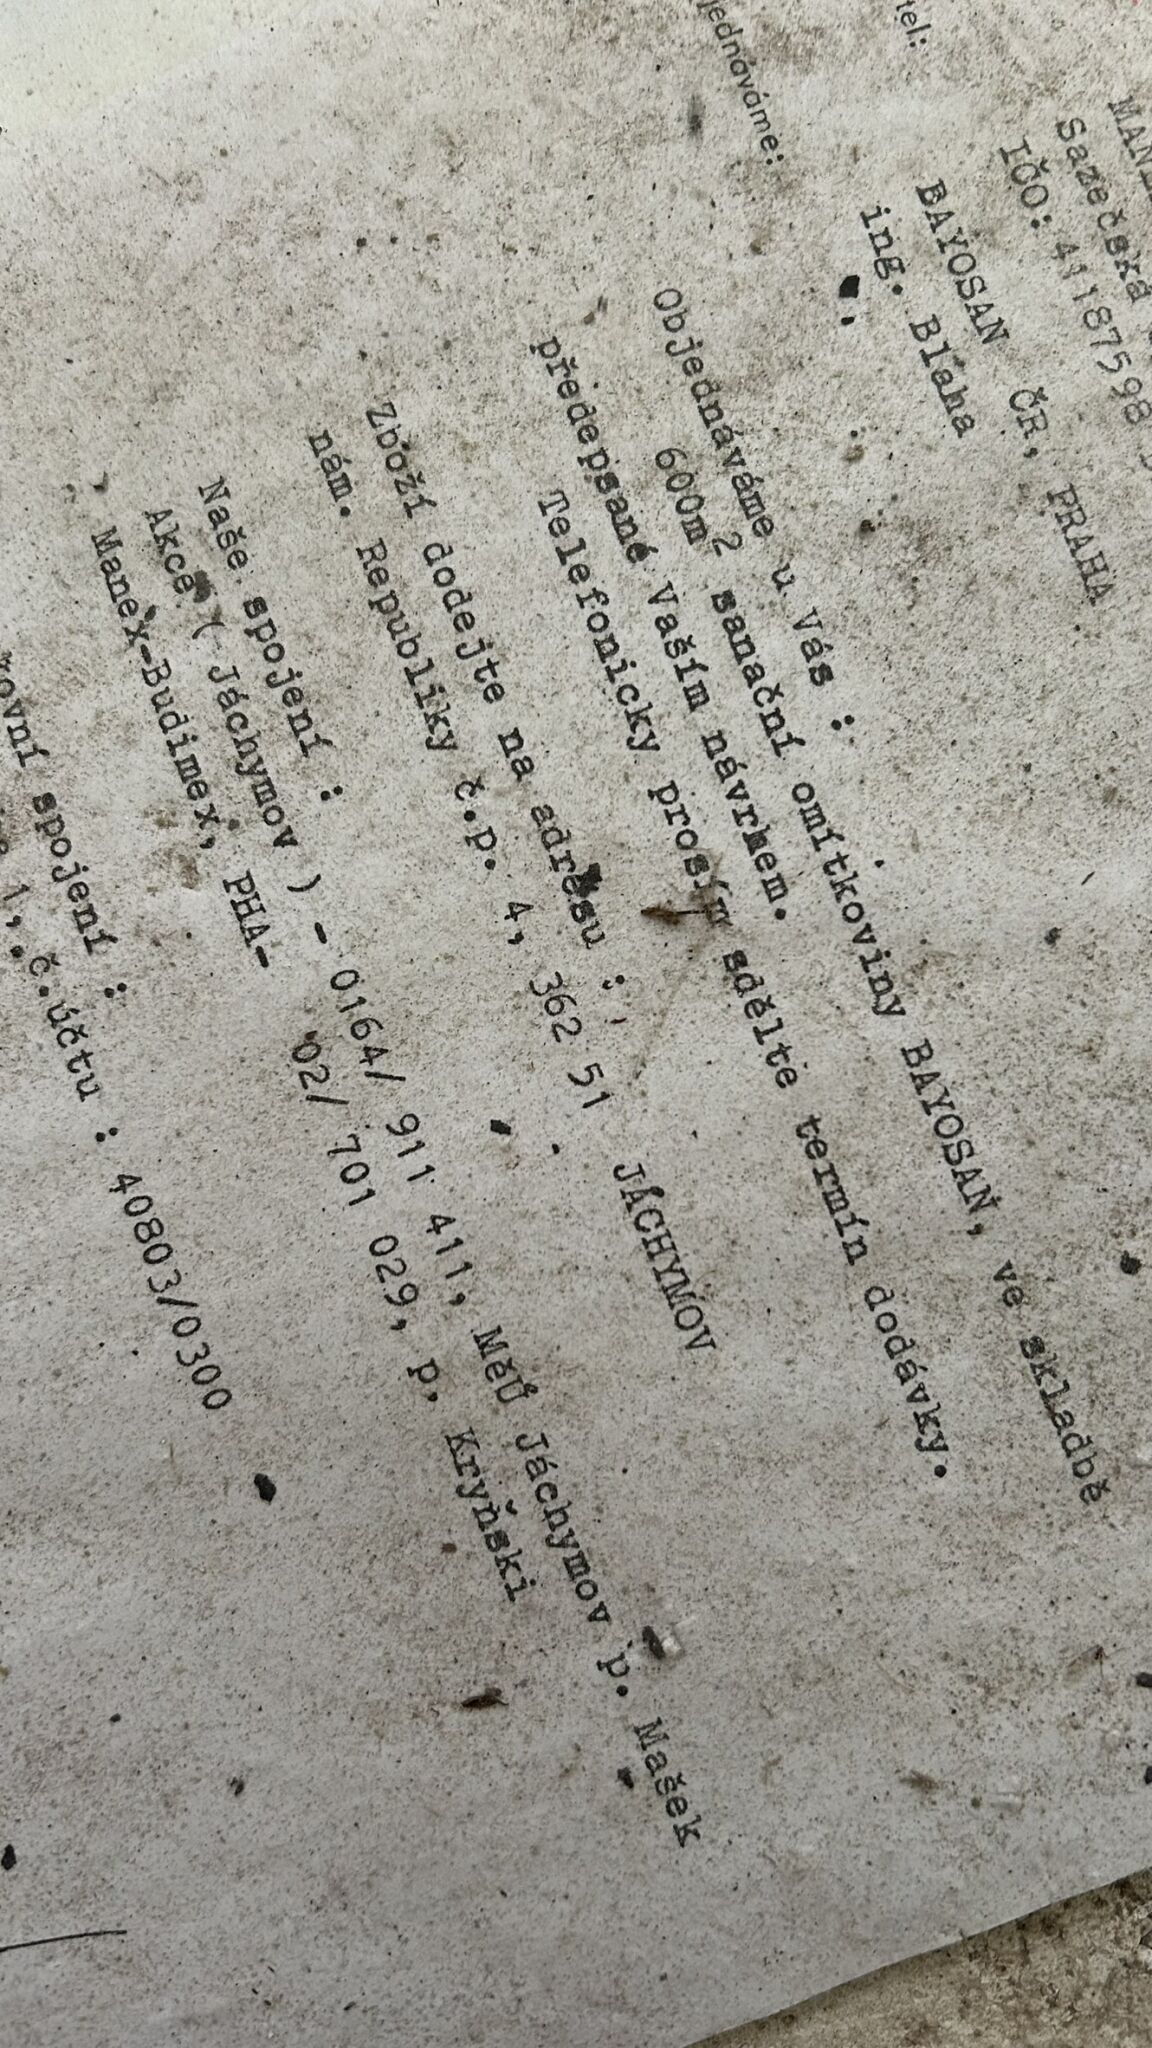 Sazečská
IČO: 41187598
tel:
BAYOSAN ČR, PRAHA
ing. Bláha
jednáváme:
Objednáváme u Vás :
600m2 sanační omítkoviny BAYOSAN, ve skladbě
předepsané Vaším návrhem.
Telefonicky prosím sdělte termín dodávky.
Zboží dodejte na adresu :
nám. Republiky č.p. 4, 362 51 JÁCHYMOV
Naše spojení :
Akce ( Jáchymov ) - 0164/ 911 411, MěÚ Jáchymov p. Mašek
Manex-Budimex, PHA- 02/ 701 029, p. Kryňski
spojení :
1, č.účtu : 40803/0300